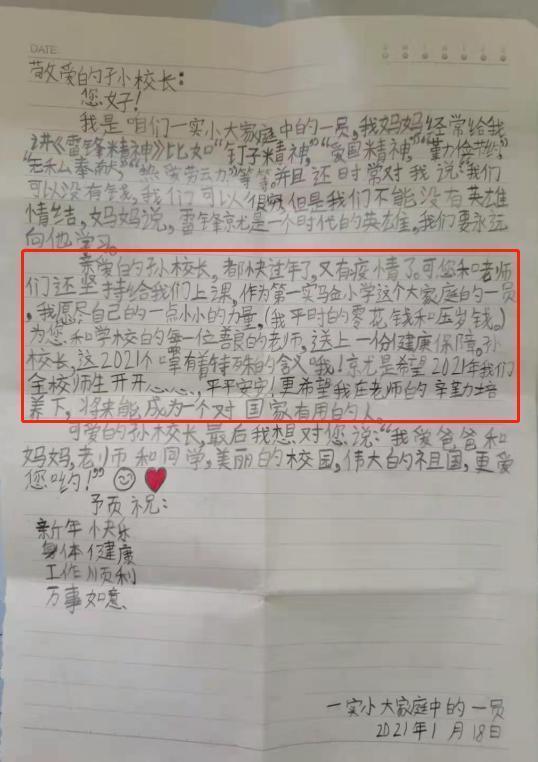 DATE:
敬爱的孙小校长：
您好！
我是咱们一实小大家庭中的一员，我妈妈经常给我
讲《雷锋精神》比如"钉子精神""爱国精神""勤俭节约"
"无私奉献""热爱劳动力"等等。并且还时常对我说"我们
可以没有钱，我们可以很穷但是我们不能没有英雄
情结，妈妈说，雷锋就是一个时代的英雄，我们要永远
向他学习。
亲爱的孙校长，都快过年了，又有疫情了。可您和老师
们还坚持给我们上课，作为第一实验小学这个大家庭的一员
，我愿尽自己的一点小小的力量，（我平时的零花钱和压岁钱。）
为您和学校的每一位善良的老师，送上一份健康保障。孙
校长，这2021个罩有着特殊的含义哦！就是希望2021年我们
全校师生开开心心，平平安安！更希望我在老师的辛勤培
养下，将来能成为一个对国家有用的人。
可爱的孙校长，最后我想对您说："我爱爸爸和
妈妈，老师和同学，美丽的校园，伟大的祖国，更爱
您哟！"
予页祝：
新年快乐
身体健康
工作顺利
万事如意
一实小大家庭中的一员
2021年1月18日